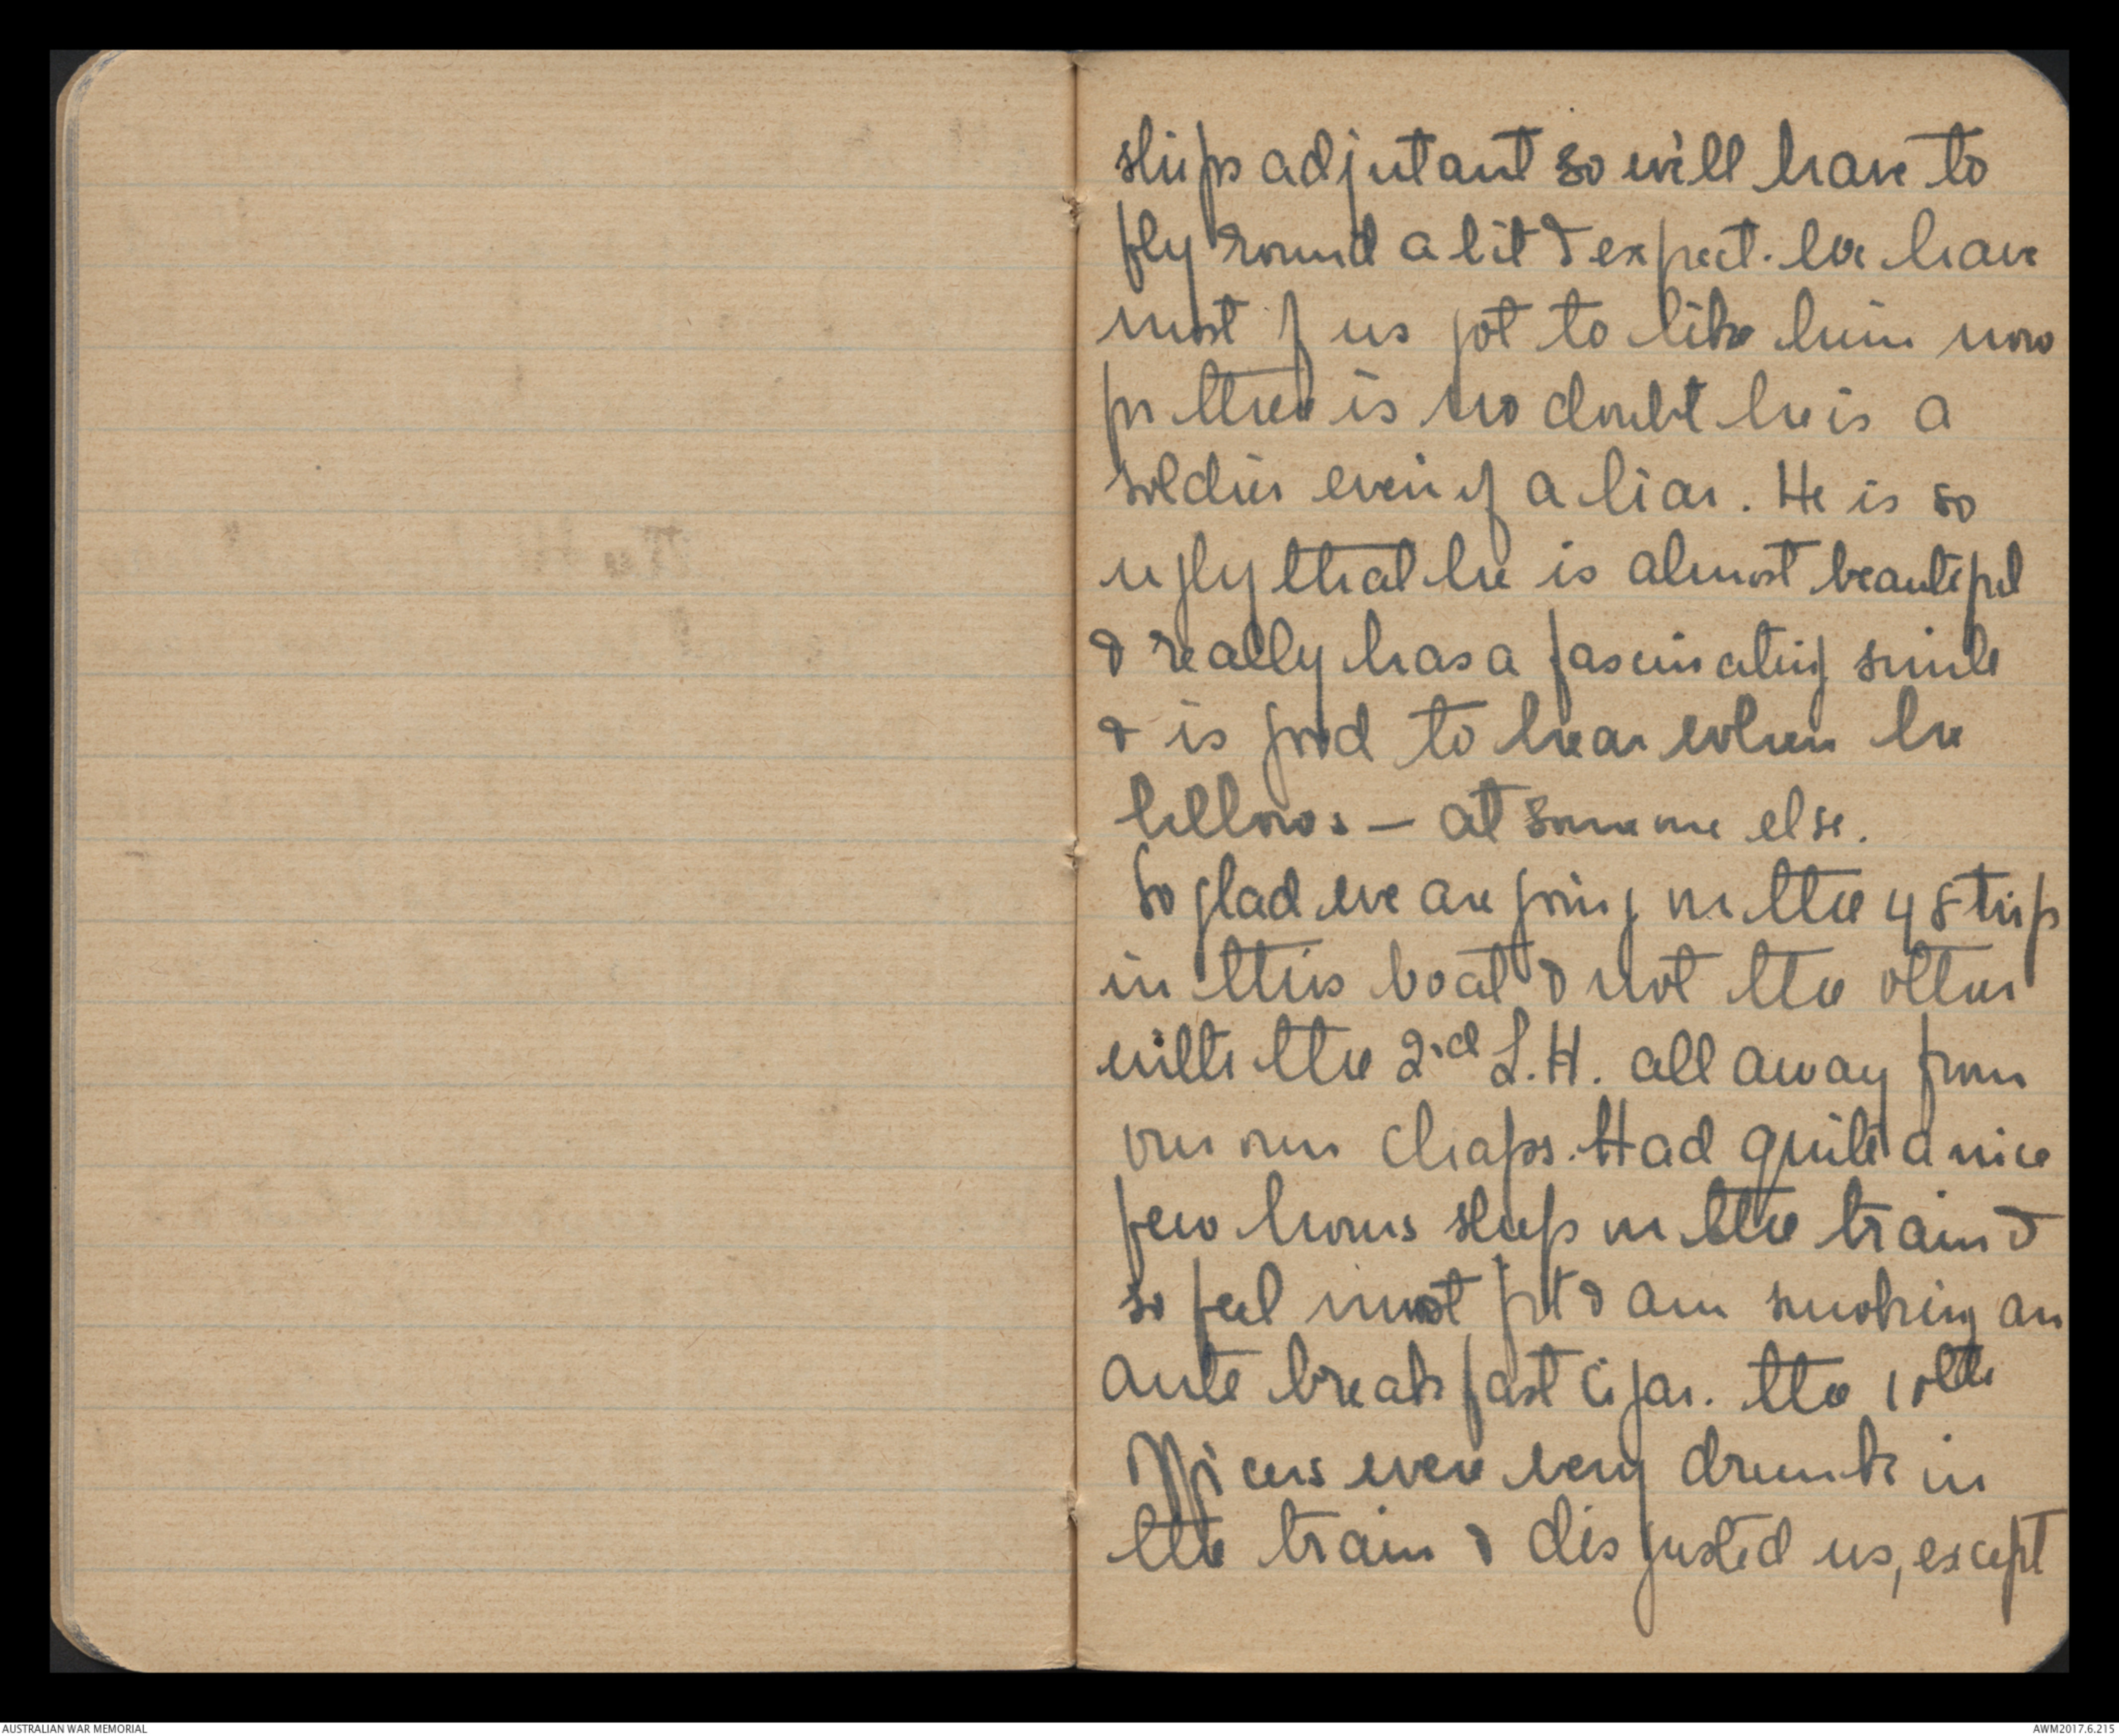 ships adjutant so will have to
fly round a bit & expect. We have
most of us got to like him now
for there is no doubt he is a
soldier even if a liar. He is so
ugly that he is almost beautiful
& really has a fascinating smile
& is good to hear when he
bellows - at someone else.
So glad we are going on the trip
in this boat & not the other
with the 2nd L.H. all away from
our own chaps. Had quite a nice
few hours sleep in the train &
so feel most fit & am smoking an
ante breakfast cigar. The 10th
Officers were very drunk in
the train & disgusted us, except
AUSTRALIAN WAR MEMORIAL
AWM2017.6.215